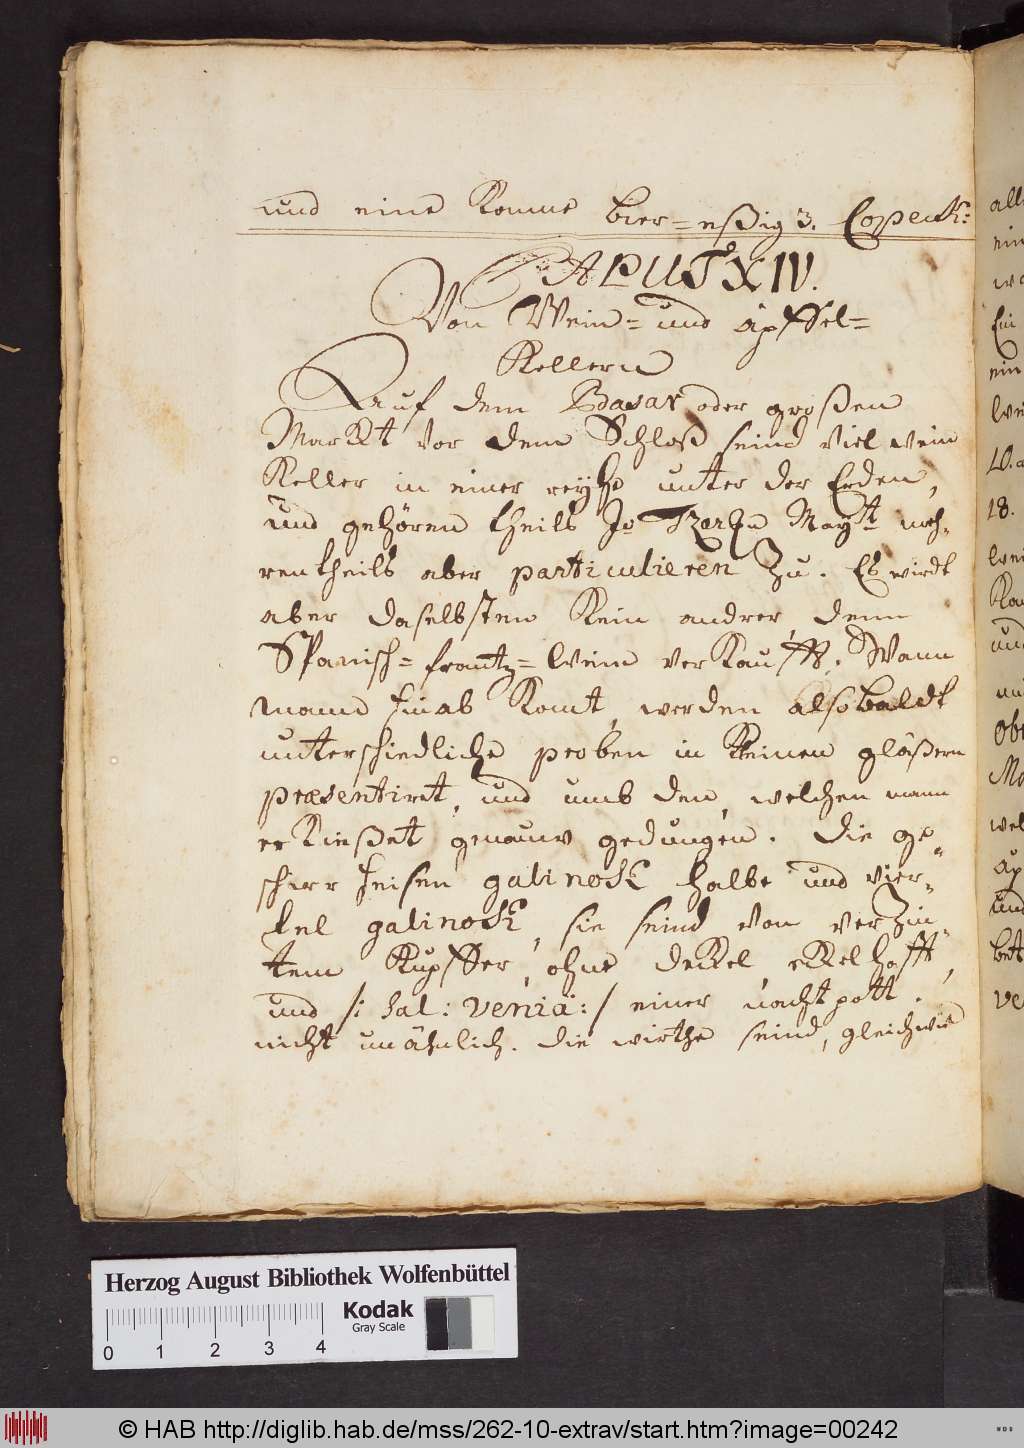 und eine Konne bier=eßig 3. Copeck:
CAPUT XIV.
Von Wein= und äpffel=
Kellern
Auf dem Basar oder großen
Markt vor dem Schloß seind viel wein
Keller in einer reyhe unter der Erden,
und gehören theils Jr Tzarln Mayt meh-
rentheils aber particulieren zu. Es wirdt
aber daselbsten kein andrer, denn
Spanisch= frantz= wein verkaufft. Wann
mann hinab komt, werden alsobaldt
unterschiedliche proben in kleinen gläßern
præsentiret, und umb den, welchen mann
erkießet genauw gedungen. Die ge-
schirr heisen galinock halbe und vier-
tel galinock, sie seind von verzin-
tem Kupffer, ohne deckel, eckelhafft,
und /: Sal: veniâ: / einer nachtpott
nicht unähnlich. die wirthe seind, gleichwie
all
ein
Ein
ein
10.
18.
und
Herzog August Bibliothek Wolfenbüttel
Kodak
Gray Scale
0 1 2 3 4
© HAB http://diglib.hab.de/mss/262-10-extrav/start.htm?image=00242